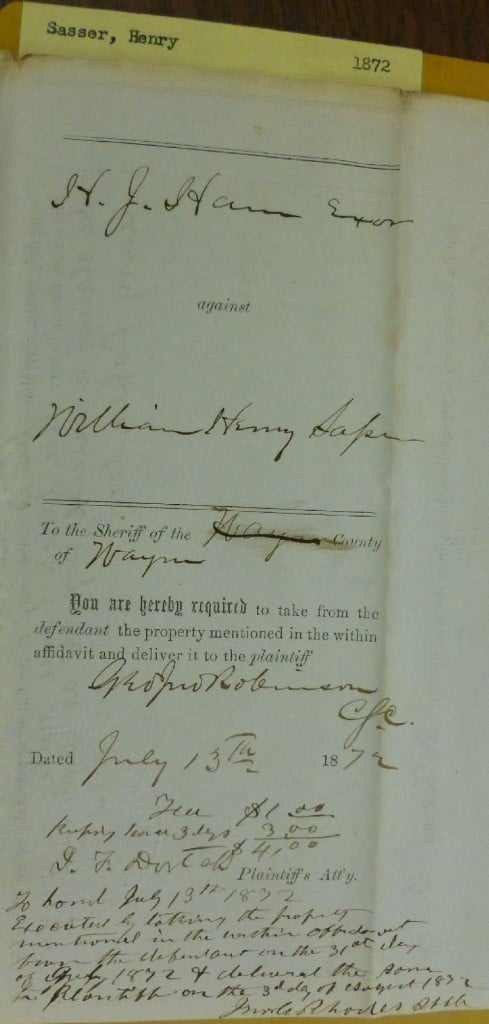 Sasser, Henry
1872
H. J. Ham Exor
against
William Henry Sasser
To the Sheriff of the Wayne County
of Wayne
You are hereby required to take from the
defendant the property mentioned in the within
affidavit and deliver it to the plaintiff
Geo Jno Robinson
C.S.C.
Dated July 13th 1872
Fee $1.00
Keeping horse 3 days 3.00
$4.00
D. F. Dortch
Plaintiff's Att'y.
To hand July 13th 1872
Executed by taking the property
mentioned in the within affidavit
from the defendant on the 31st day
of July 1872 & delivered the same
to Plaintiff on the 3rd day of August 1872
Rhodes Shff